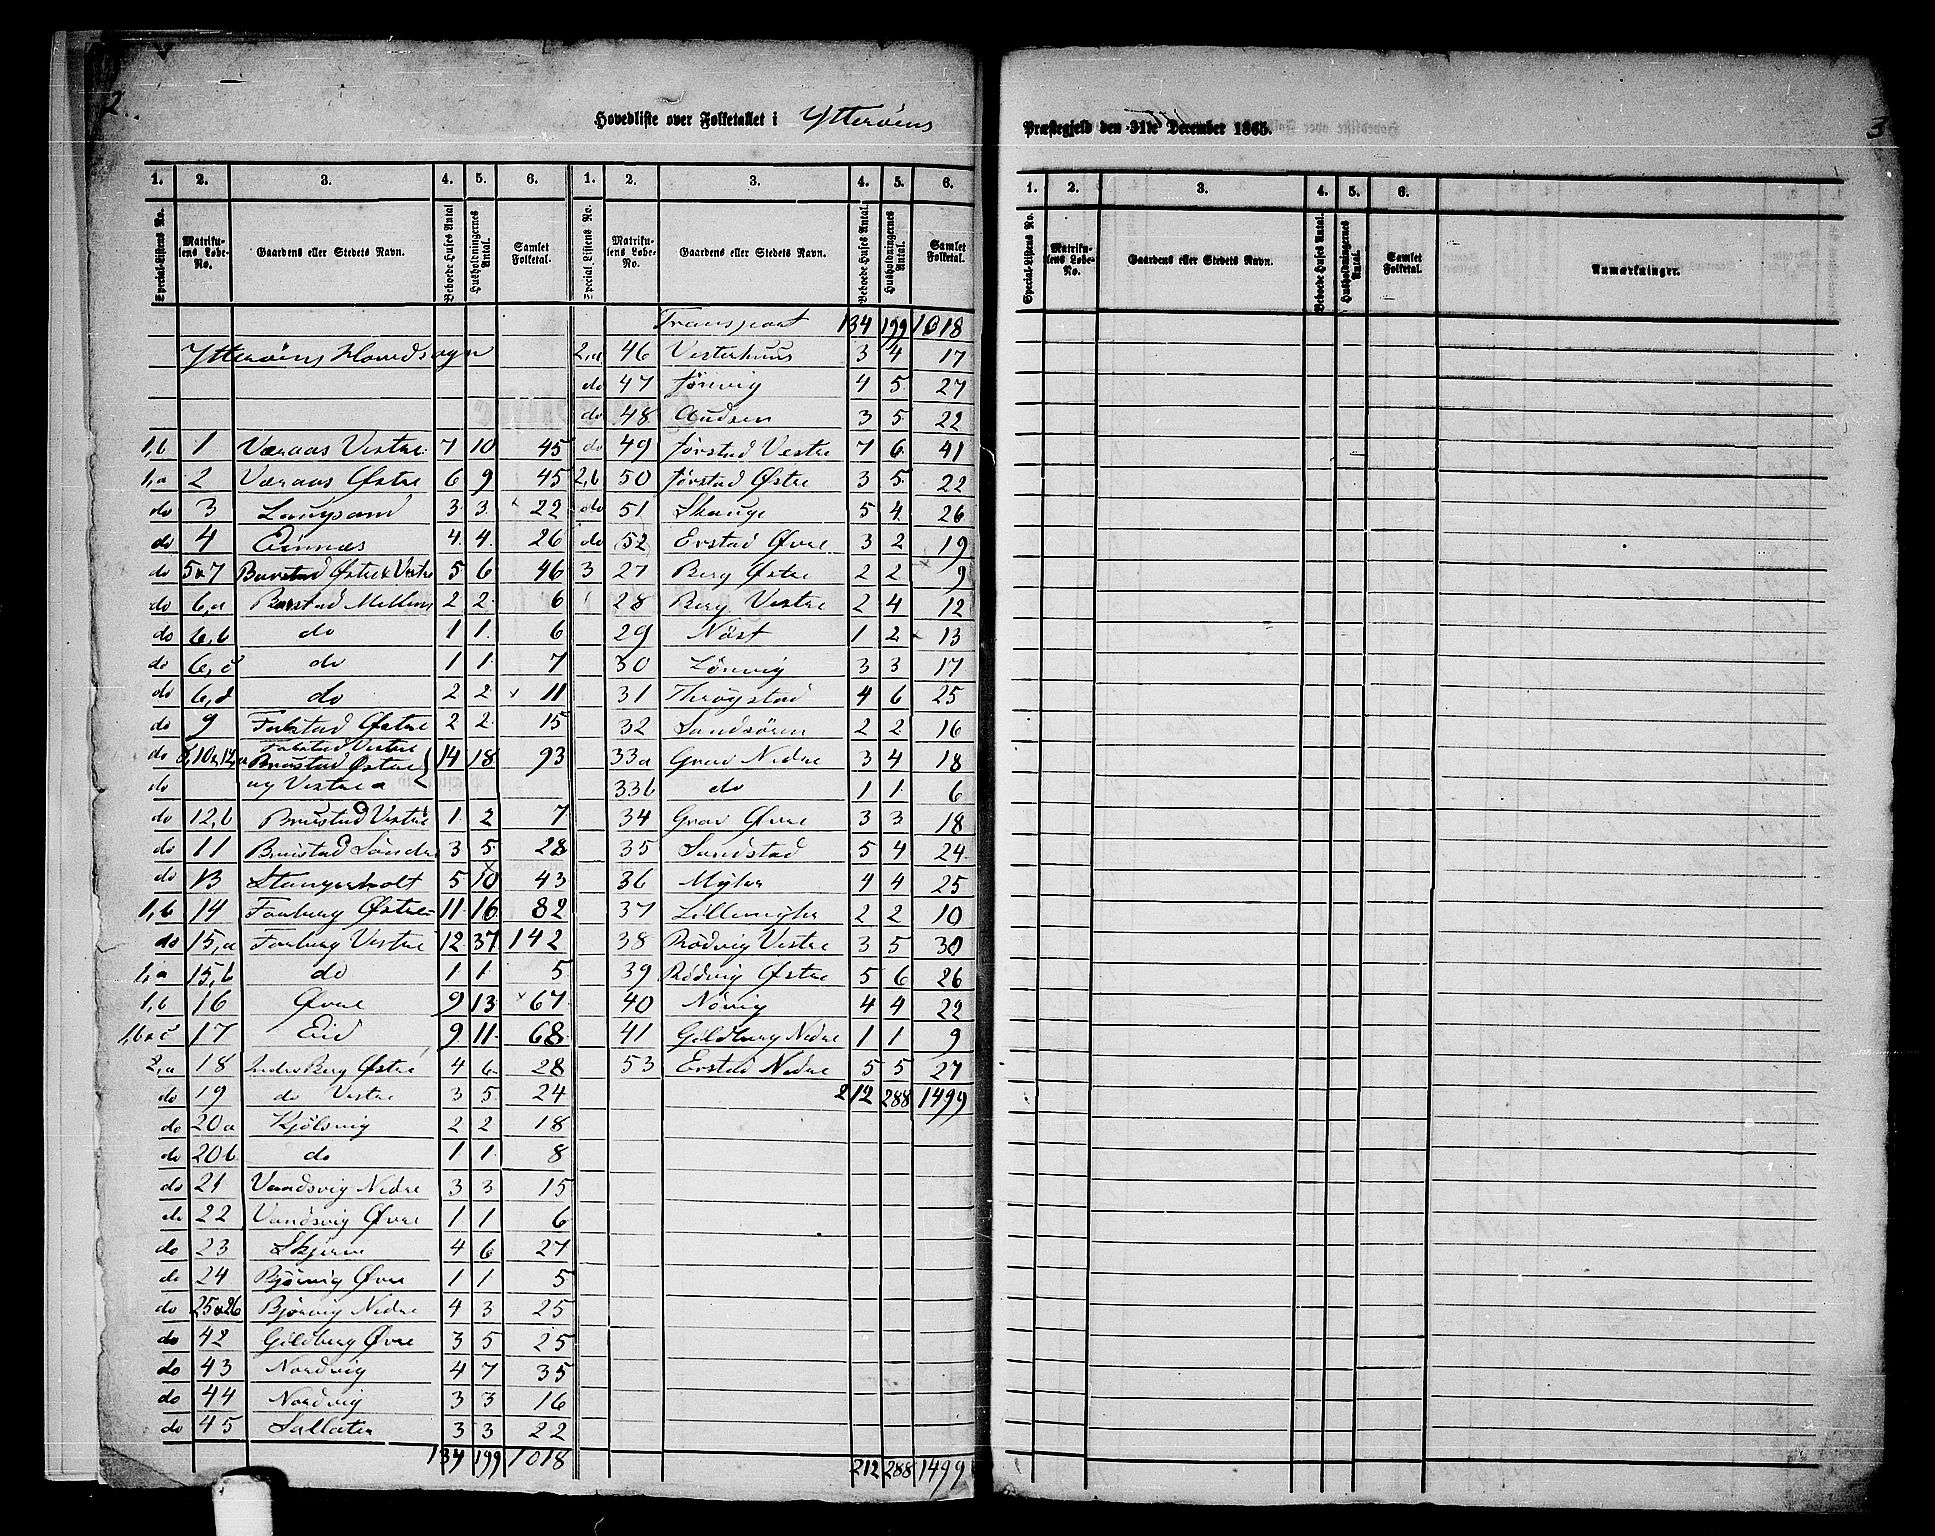 2.
Hovedliste over Folketallet i Ytterøens
Præstegjeld den 31te December 1865.
3
1. 2. 3. 4. 5. 6. 1. 2. 3. 4. 5. 6.
Special-Listens No. Matrikulens Løbe-No. Gaardens eller Stedets Navn. Beboede Huses Antal Husholdningernes Antal. Samlet Folketal. Special-Listens No. Matrikulens Løbe-No. Gaardens eller Stedets Navn. Beboede Huses Antal. Husholdningernes Antal. Samlet Folketal.
Ytterøens Hovedsogn
1,b 1 Væraas Vestre 7 10 45
1,a 2 Væraas Østre 6 9 45
do 3 Laugsand 3 3 22
do 4 Einnæs 4 4 26
do 5 a 7 Barstad Østre & Vestre 5 6 46
do 6,a Barstad Mellem 2 2 6
do 6,b do 1 1 6
do 6,c do 1 1 7
do 6,d do 2 2 11
do 9 Falstad Østre 2 2 15
do 8,10a,12,a Falstad Vestre Brustad Østre 14 18 93
do og Vestre a
do 12,b Brustad Vestre 1 2 7
do 11 Brustad Søndre 3 5 28
do 13 Stangerholt 5 10 43
1,b 14 Forberg Østre 11 16 82
do 15,a Forberg Vestre 12 37 142
1,a 15,b do 1 1 5
1,b 16 Øvre 9 13 67
1,b & c 17 Eid 9 11 68
2,a 18 Indre Berg Østre 4 6 28
do 19 do Vestre 3 5 24
do 20a Kjølsvig 2 2 18
do 20b do 1 1 8
do 21 Vandsvig Nedre 3 3 15
do 22 Vandsvig Øvre 1 1 6
do 23 Skjerve 4 6 27
do 24 Bjørvig Øvre 1 1 5
do 25 & 26 Bjørvig Nedre 4 3 25
do 42 Gildberg Øvre 3 5 25
do 43 Nordvig 4 7 35
do 44 Nordvig 3 3 16
do 45 3 3 22
134 199 1018
Transport 134 199 1018
2,a 46 Vesterhuus 3 4 17
do 47 Jørvig 4 5 27
do 48 Audsen 3 5 22
do 49 Jørstad Vestre 7 6 41
2,b 50 Jørstad Østre 3 5 22
do 51 Skauge 5 4 26
do 52 Erstad Øvre 3 2 19
3 27 Berg Østre 2 2 9
28 Berg Vestre 2 4 12
29 Nøst 1 2 13
30 Lønvig 3 3 17
31 Thrøgstad 4 6 25
32 Sandsøren 2 2 16
33a Grav Nedre 3 4 18
33b do 1 1 6
34 Grav Øvre 3 3 18
35 Sandstad 5 4 24
36 Myhr 4 4 25
37 Lillemyhr 2 2 10
38 Rødvig Vestre 3 5 30
39 Rødvig Østre 5 6 26
40 Nøvig 4 4 22
41 Gildberg Nedre 1 1 9
53 Erstad Nedre 5 5 27
212 288 1499
212 288 1499
1. 2. 3. 4. 5. 6.
Special-Listens No. Matrikulens Løbe-No. Gaardens eller Stedets Navn. Beboede Huses Antal. Husholdningernes Antal. Samlet Folketal. Anmærkninger.